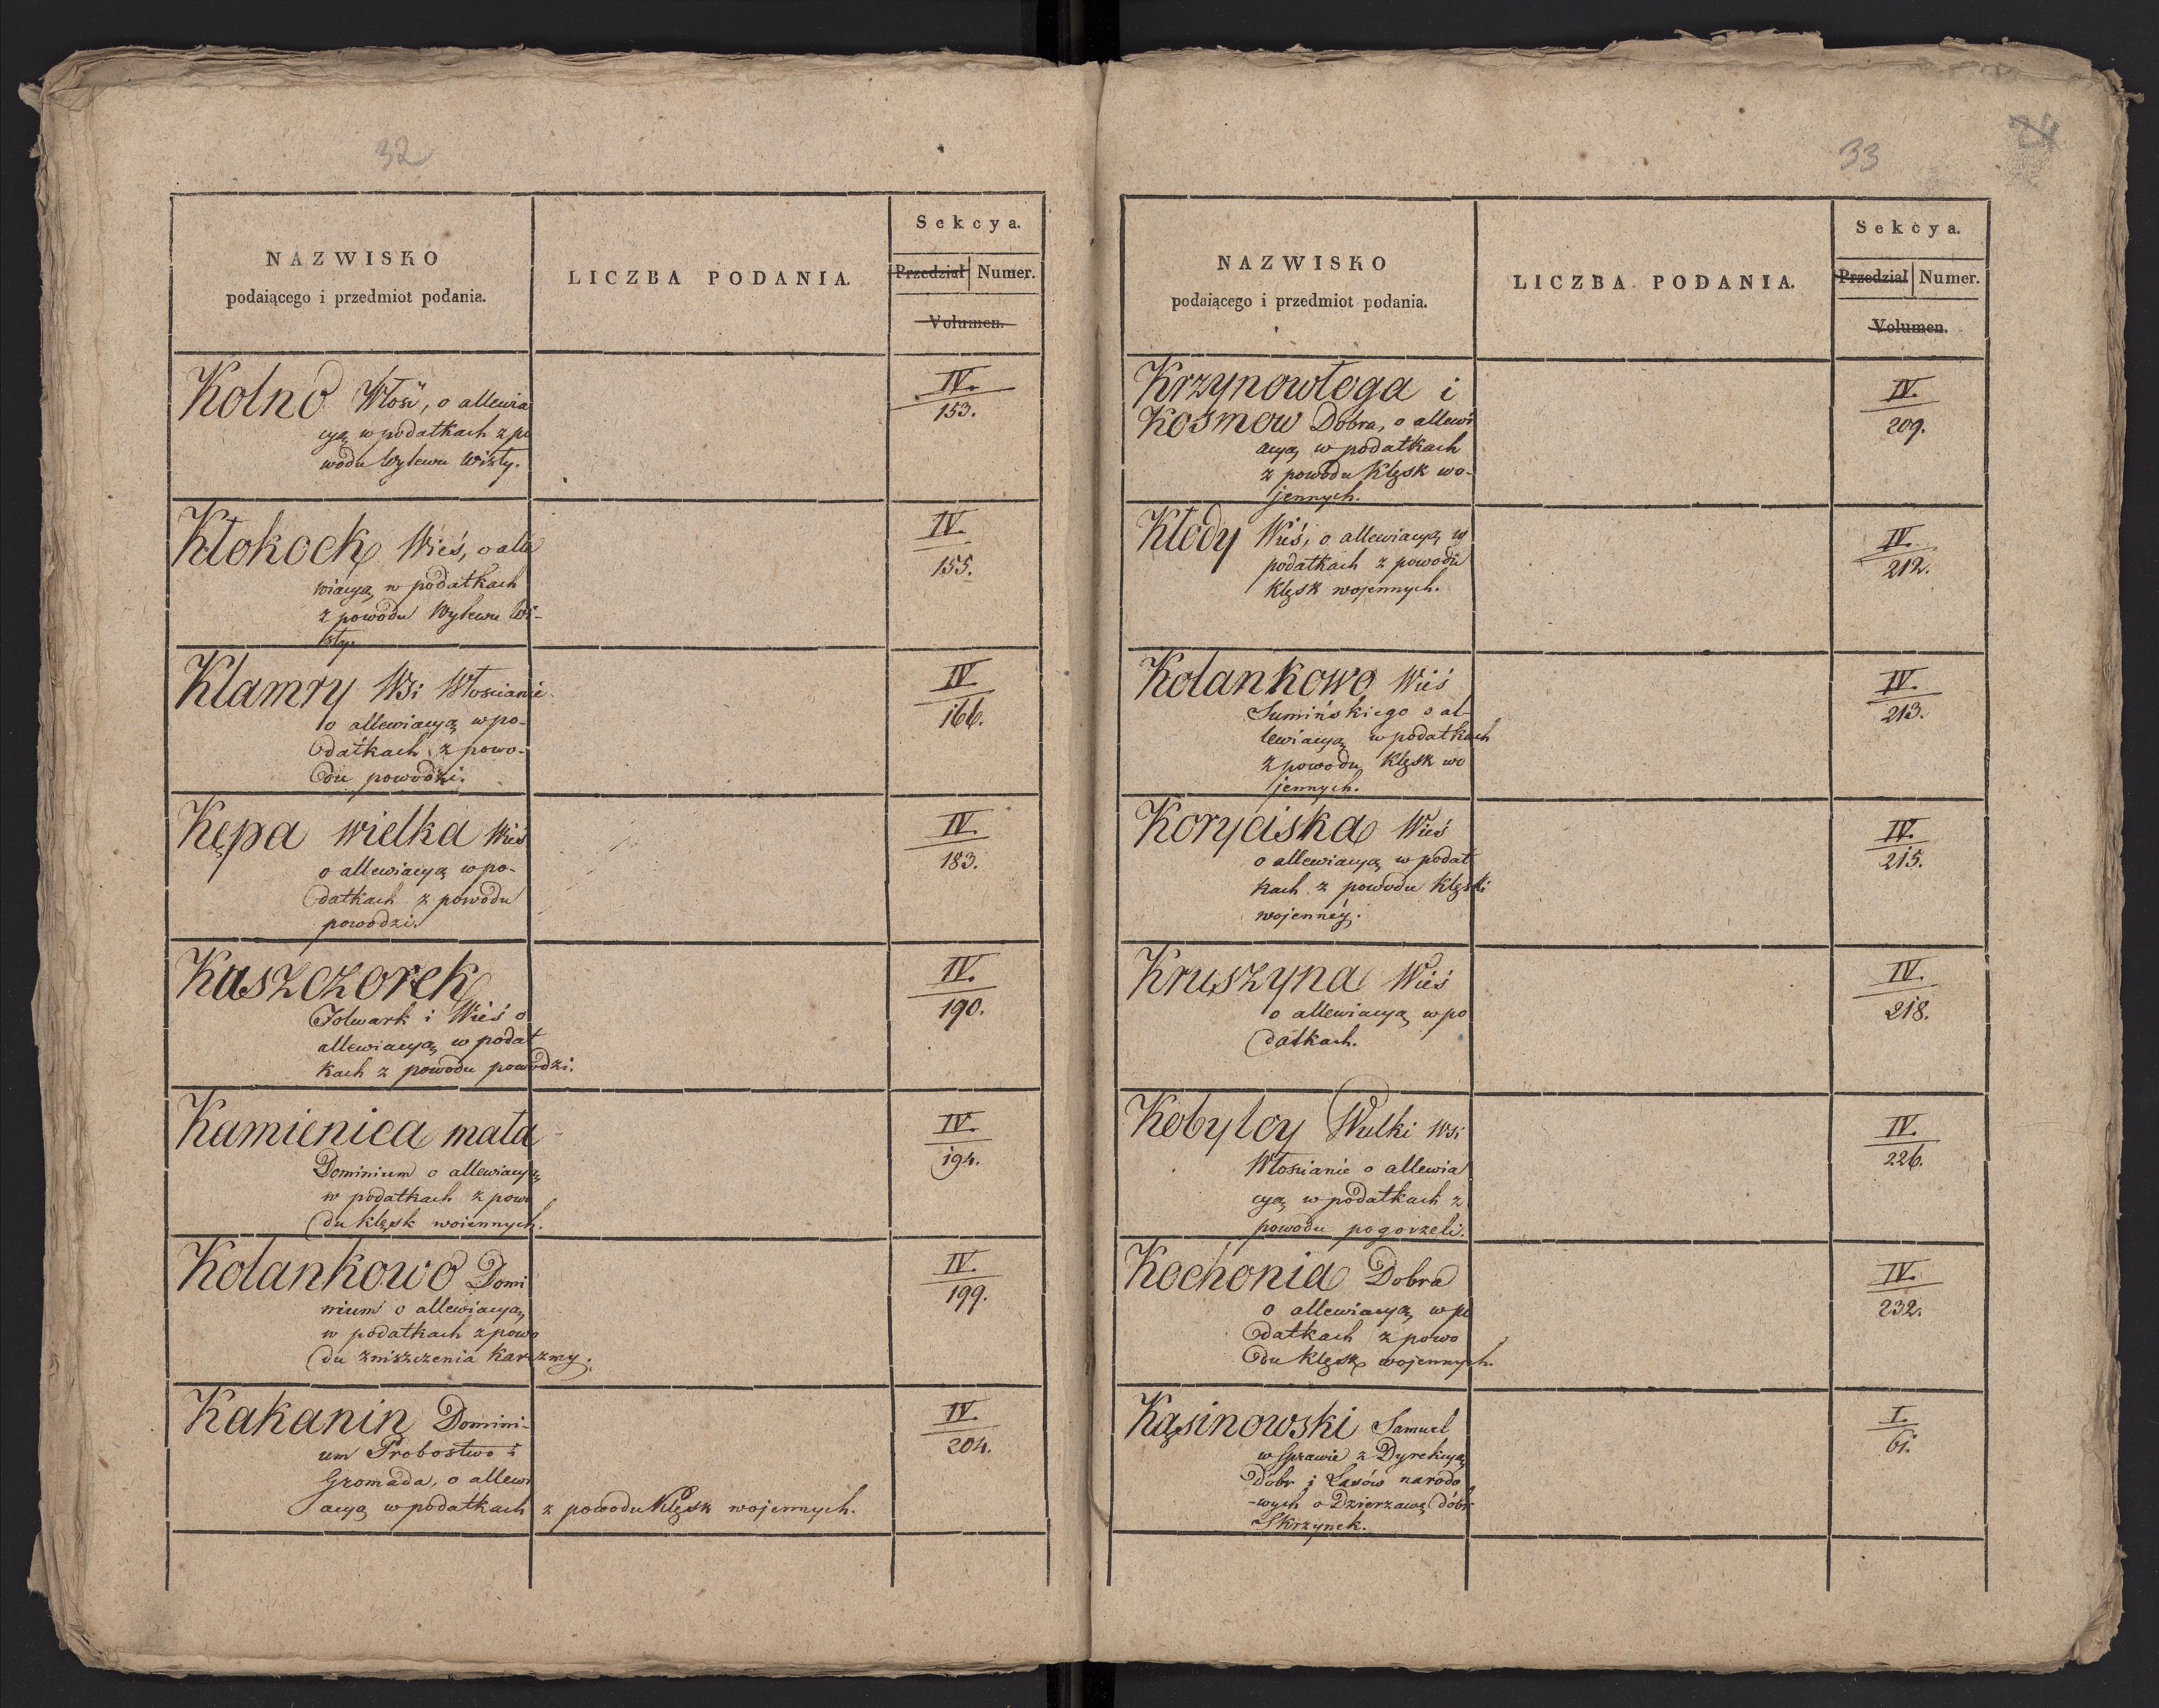 32
NAZWISKO
podaiącego i przedmiot podania.
LICZBA PODANIA.
Sekcya.
Przedział Numer.
Volumen.
Kolno Włość, o allewia
cyą w podatkach z po
wodu Wylewu Wisły.
IV.
153.
Kłokock Wieś, o alle
wiacyą w podatkach
z powodu Wylewu Wi-
sły.
IV.
155.
Klamry Wsi Włościanie
o allewiacyą w po-
datkach z powo-
du powodzi.
IV
166.
Kępa wielka Wieś
o allewiacyą w po-
datkach z powodu
powodzi.
IV.
183.
Kaszczorek
Folwark i Wieś o
allewiacyą w podat
kach z powodu powodzi.
IV.
190.
Kamienica mała
Dominium o allewiacyą
w podatkach z powo
du klęsk woiennych.
IV.
194.
Kolankowo Domi
nium o allewiacyą
w podatkach z powo
du zniszczenia Karczmy.
IV.
199.
Kakanin Domini-
um Probostwo i
Gromada, o allewi
acyą w podatkach z powodu Klęsk wojennych.
IV.
204.
33
24
NAZWISKO
podaiącego i przedmiot podania.
LICZBA PODANIA.
Sekcya.
Przedział Numer.
Volumen.
Krzynowłoga i
Kosmow Dobra, o allewi
acyą w podatkach
z powodu Klęsk wo-
jennych.
IV.
209.
Kłody Wieś, o allewiacyą w
podatkach z powodu
klęsk wojennych.
IV.
212.
Kolankowo Wieś
Sumińskiego o al-
lewiacyą w podatkach
z powodu Klęsk wo
jennych.
IV.
213.
Koryciska Wieś
o allewiacyą w podat
kach z powodu Klęski
wojennéy.
IV.
215.
Kruszyna Wieś
o allewiacyą w po
datkach.
IV.
218.
Kobylcy Wulki Wsi
Włoscianie o allewia
cyą w podatkach z
powodu pogorzeli.
IV.
226.
Kochonia Dobra
o allewiacyą w po
datkach z powo
du klęsk wojennych.
IV.
232.
Kąsinowski Samuel
w Sprawie z Dyrekcyą
Dóbr i Lasów narodo
-wych o Dzierzawę dóbr
Skrzynek.
I.
61.